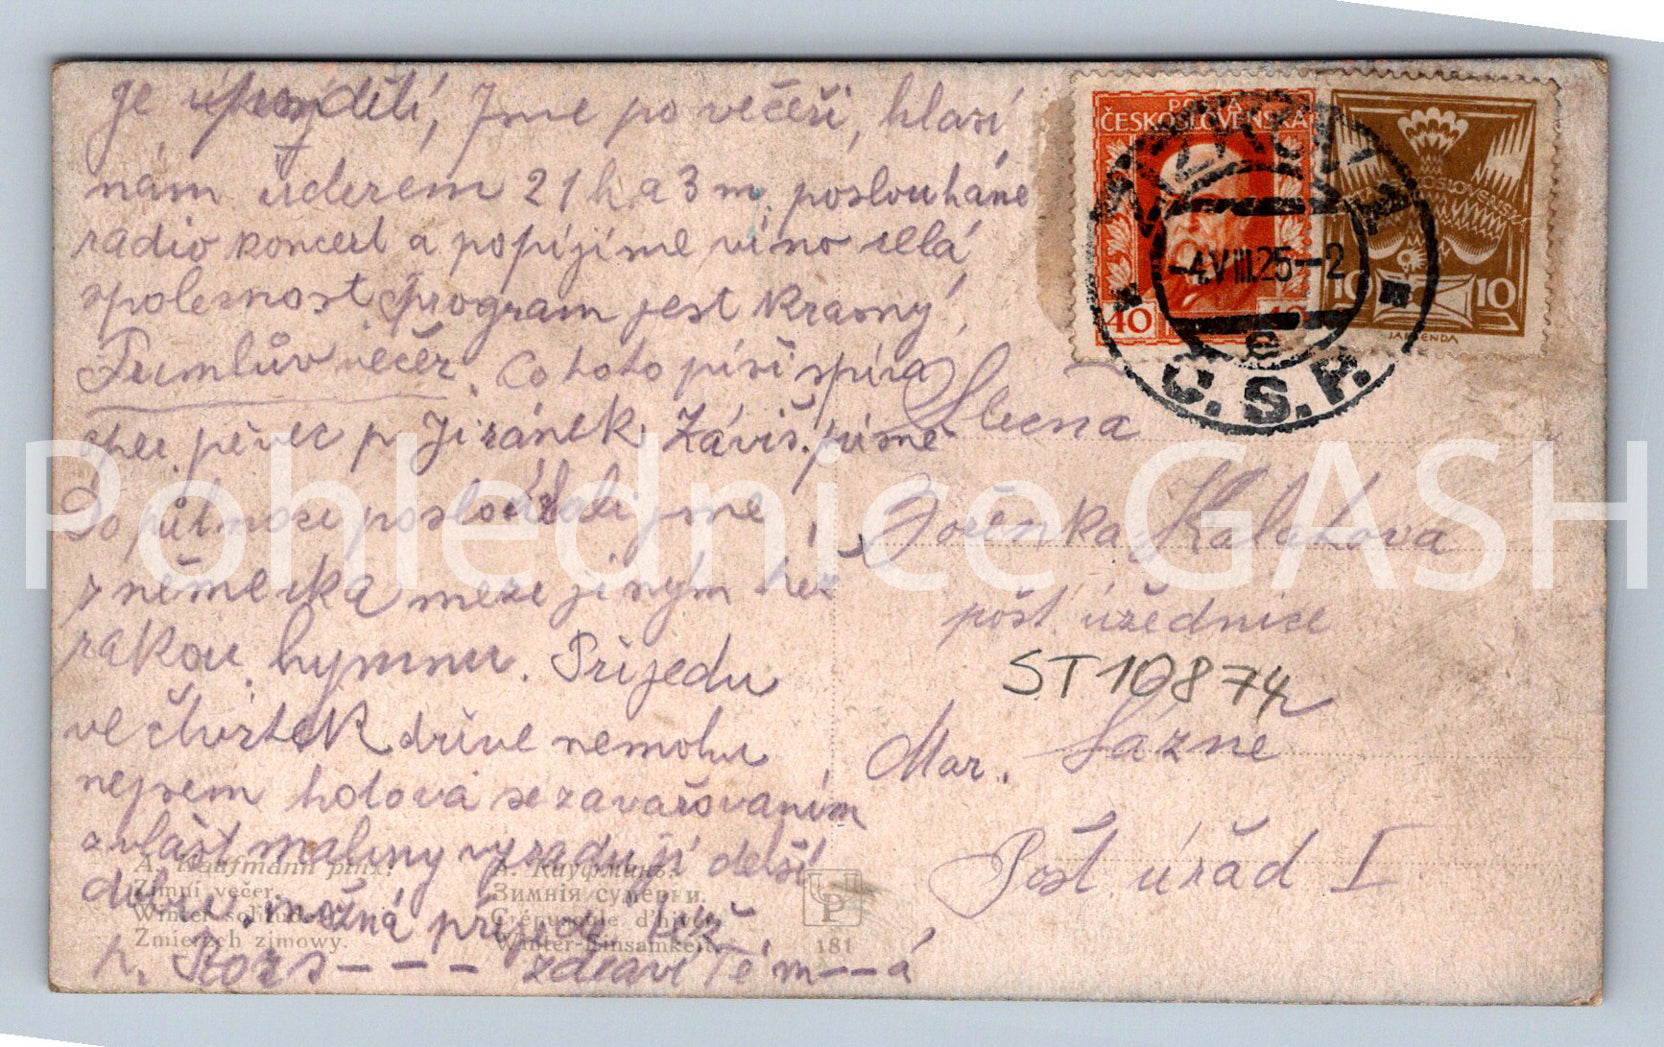 je úpondělí, Jsme po večeři, hlasí
nám úderem 21 h. a 3 m. posloucháme
radio koncert a popíjíme víno celá
spolecnost program jest krasný,
večer. Co toto píši spívá
oper. pěvec p. Jiránek, Záviš. písně
Do půlnoci poslouchali jsme
z německa meze jiným též
rakou. hymnu. Prijedu
ve čtvrtek dříve nemohu
nejsem hotová se zavařovaním
zvlášt maliny vyžadují delší
dobu. možná přijede též
p. Rozs--- zdraví Tě m--á
POŠTA
ČESKOSLOVENSKÁ
40
10 10
JA. BENDA
-4.VIII.25-2
e
Č.S.P.
Slecna
Jořinka
pošt. úřednice
ST10874
Mar. Lázně
Pošt. úřad I
A. Kaufmann pinx.
Zimní večer.
Winter solitude.
Zmierzch zimowy.
А. Кауфманъ.
Зимнія сумерки.
Crépuscule d'hiver.
Winter-Einsamkeit.
UP
181
Pohlednice GASH